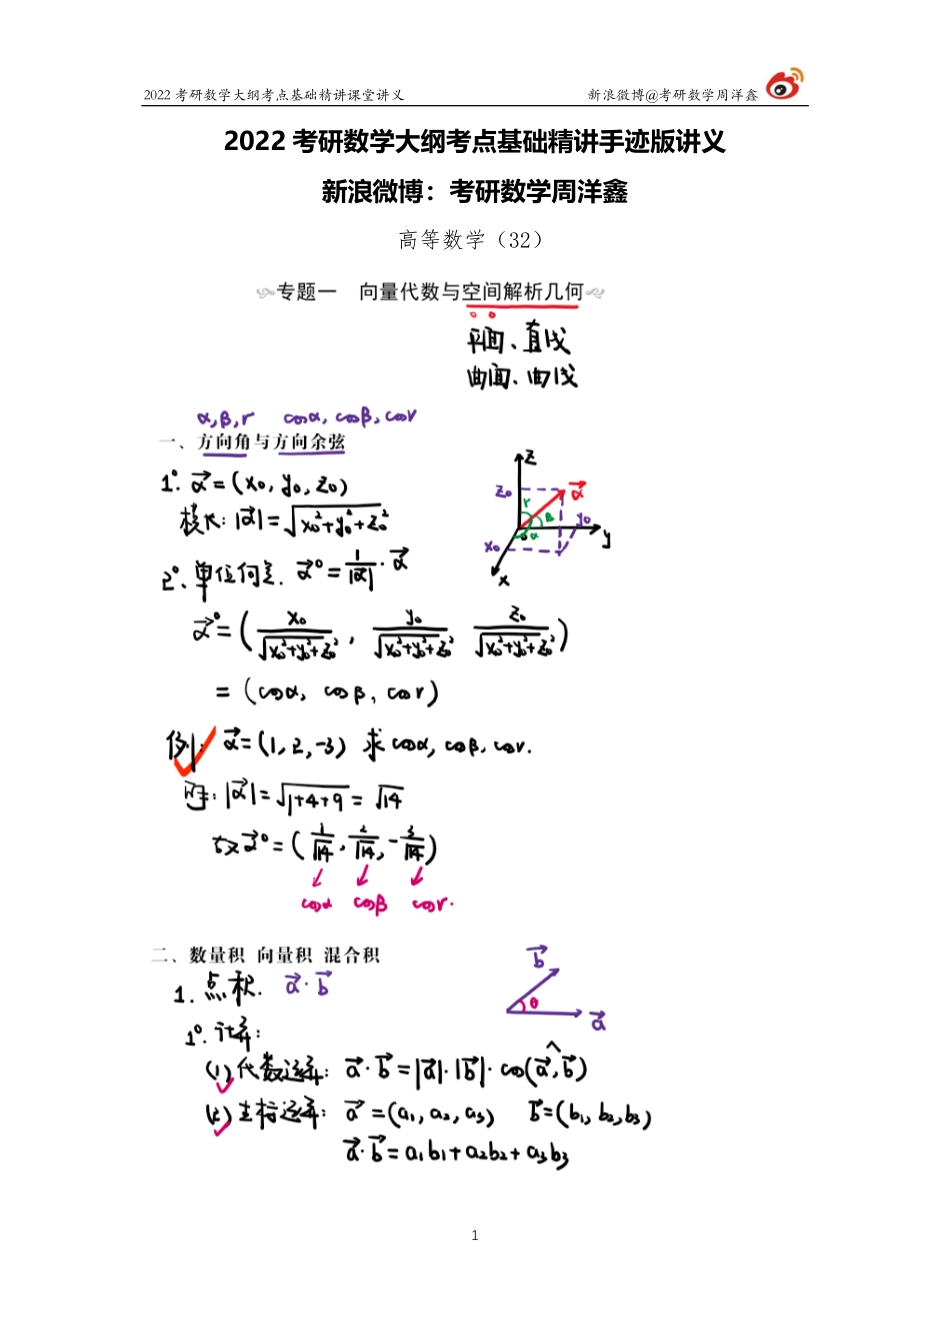 2022 考研数学大纲考点基础精讲课堂讲义 新浪微博@考研数学周洋鑫
2022 考研数学大纲考点基础精讲手迹版讲义
新浪微博：考研数学周洋鑫
高等数学（32）
专题一 向量代数与空间解析几何
平面、直线
曲面、曲线
α,β,r cosα, cosβ, cosr
一、方向角与方向余弦
1°. α⃗=(x₀, y₀, z₀)
模长: |α⃗|=√(x₀²+y₀²+z₀²)
z
z₀ α⃗
r β y₀
o α y
x₀
x
2°、单位向量. α⃗°= 1/|α⃗| · α⃗
α⃗°=( x₀/√(x₀²+y₀²+z₀²), y₀/√(x₀²+y₀²+z₀²) z₀/√(x₀²+y₀²+z₀²) )
= (cosα, cosβ, cosr)
例: α⃗=(1, 2, -3) 求 cosα, cosβ, cosr.
解: |α⃗|=√(1+4+9) = √14
故α⃗°=( 1/√14, 2/√14, -3/√14 )
cosα cosβ cosr.
二、数量积 向量积 混合积
1. 点积. a⃗·b⃗
b⃗
θ
a⃗
1°. 计算:
(1) 代数运算: a⃗·b⃗=|a⃗|·|b⃗|·cos(a⃗,^b⃗)
(2) 坐标运算: a⃗=(a₁, a₂, a₃) b⃗=(b₁, b₂, b₃)
a⃗·b⃗=a₁b₁+a₂b₂+a₃b₃
1